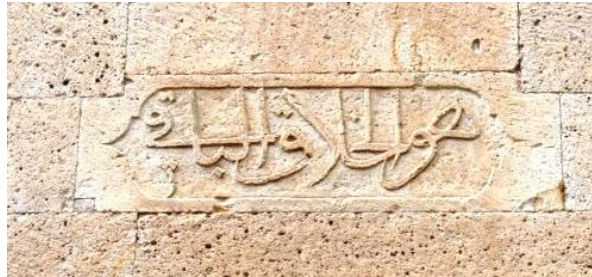 هو الخلاق الباقي